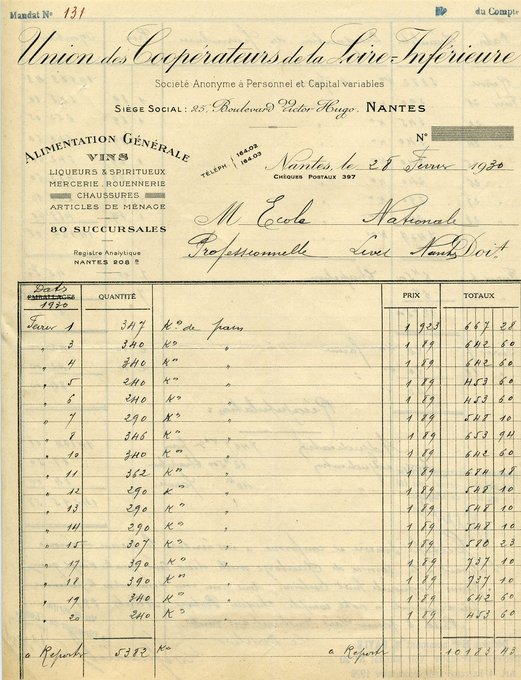 Mandat No 131
du Compte
Union des Coopérateurs de la Loire-Inférieure
Société Anonyme à Personnel et Capital variables
SIÈGE SOCIAL : 25, Boulevard Victor Hugo. NANTES
No
ALIMENTATION GÉNÉRALE
VINS
LIQUEURS & SPIRITUEUX
MERCERIE, ROUENNERIE
CHAUSSURES
ARTICLES DE MÉNAGE
80 SUCCURSALES
Registre Analytique
NANTES 208 B
TÉLÉPH. 164.02
164.03
Nantes, le 28 Fevrier 1930
CHÈQUES POSTAUX 397
M Ecole Nationale
Professionnelle Livet Nantes Doit
Date EMBALLAGES 1930 QUANTITÉ PRIX TOTAUX
Fevrier 1 347 Kos de pain 1 923 667 28
" 3 340 Kos " 1 89 642 60
" 4 340 Kos " 1 89 642 60
" 5 240 Kos " 1 89 453 60
" 6 240 Kos " 1 89 453 60
" 7 290 Kos " 1 89 548 10
" 8 346 Kos " 1 89 653 94
" 10 340 Kos " 1 89 642 60
" 11 362 Kos " 1 89 684 18
" 12 290 Kos " 1 89 548 10
" 13 290 Kos " 1 89 548 10
" 14 290 Kos " 1 89 548 10
" 15 307 Kos " 1 89 580 23
" 17 390 Kos " 1 89 737 10
" 18 390 Kos " 1 89 737 10
" 19 340 Kos " 1 89 642 60
" 20 240 Kos " 1 89 453 60
a Reporter 5382 Kos a Reporter 10183 43